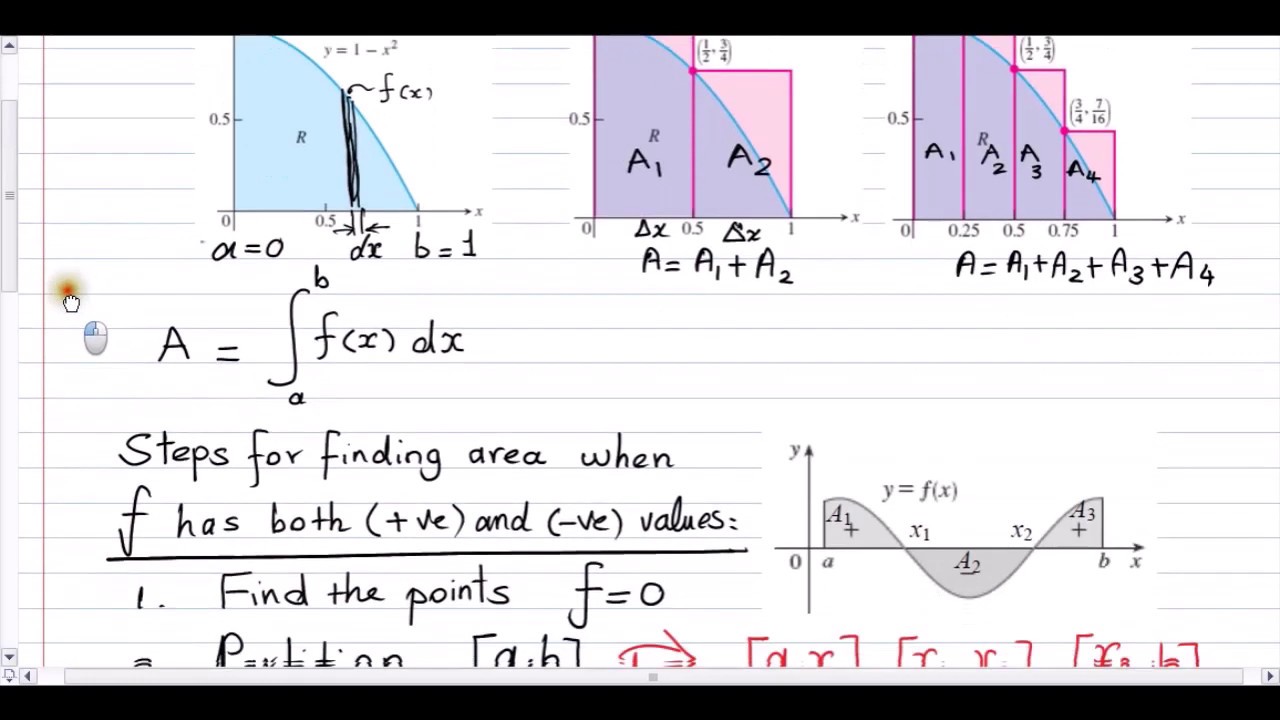 y = 1 − x²
f(x)
0.5
R
0 0.5 1 x
a=0 dx b=1
(1/2, 3/4)
0.5
R
A₁ A₂
0 Δx 0.5 Δx 1 x
A= A₁ + A₂
(1/2, 3/4)
(3/4, 7/16)
0.5
R
A₁ A₂ A₃ A₄
0 0.25 0.5 0.75 1 x
A= A₁+A₂+A₃+A₄
A = ∫ₐᵇ f(x) dx
Steps for finding area when
f has both (+ve) and (-ve) values:
y
y = f(x)
A₁ + x₁ x₂ A₃ +
0 a A₂ − b x
1. Find the points f=0
2. Partition [a,b] ⇒ [a,x₁] [x₁,x₂] [x₂,b]